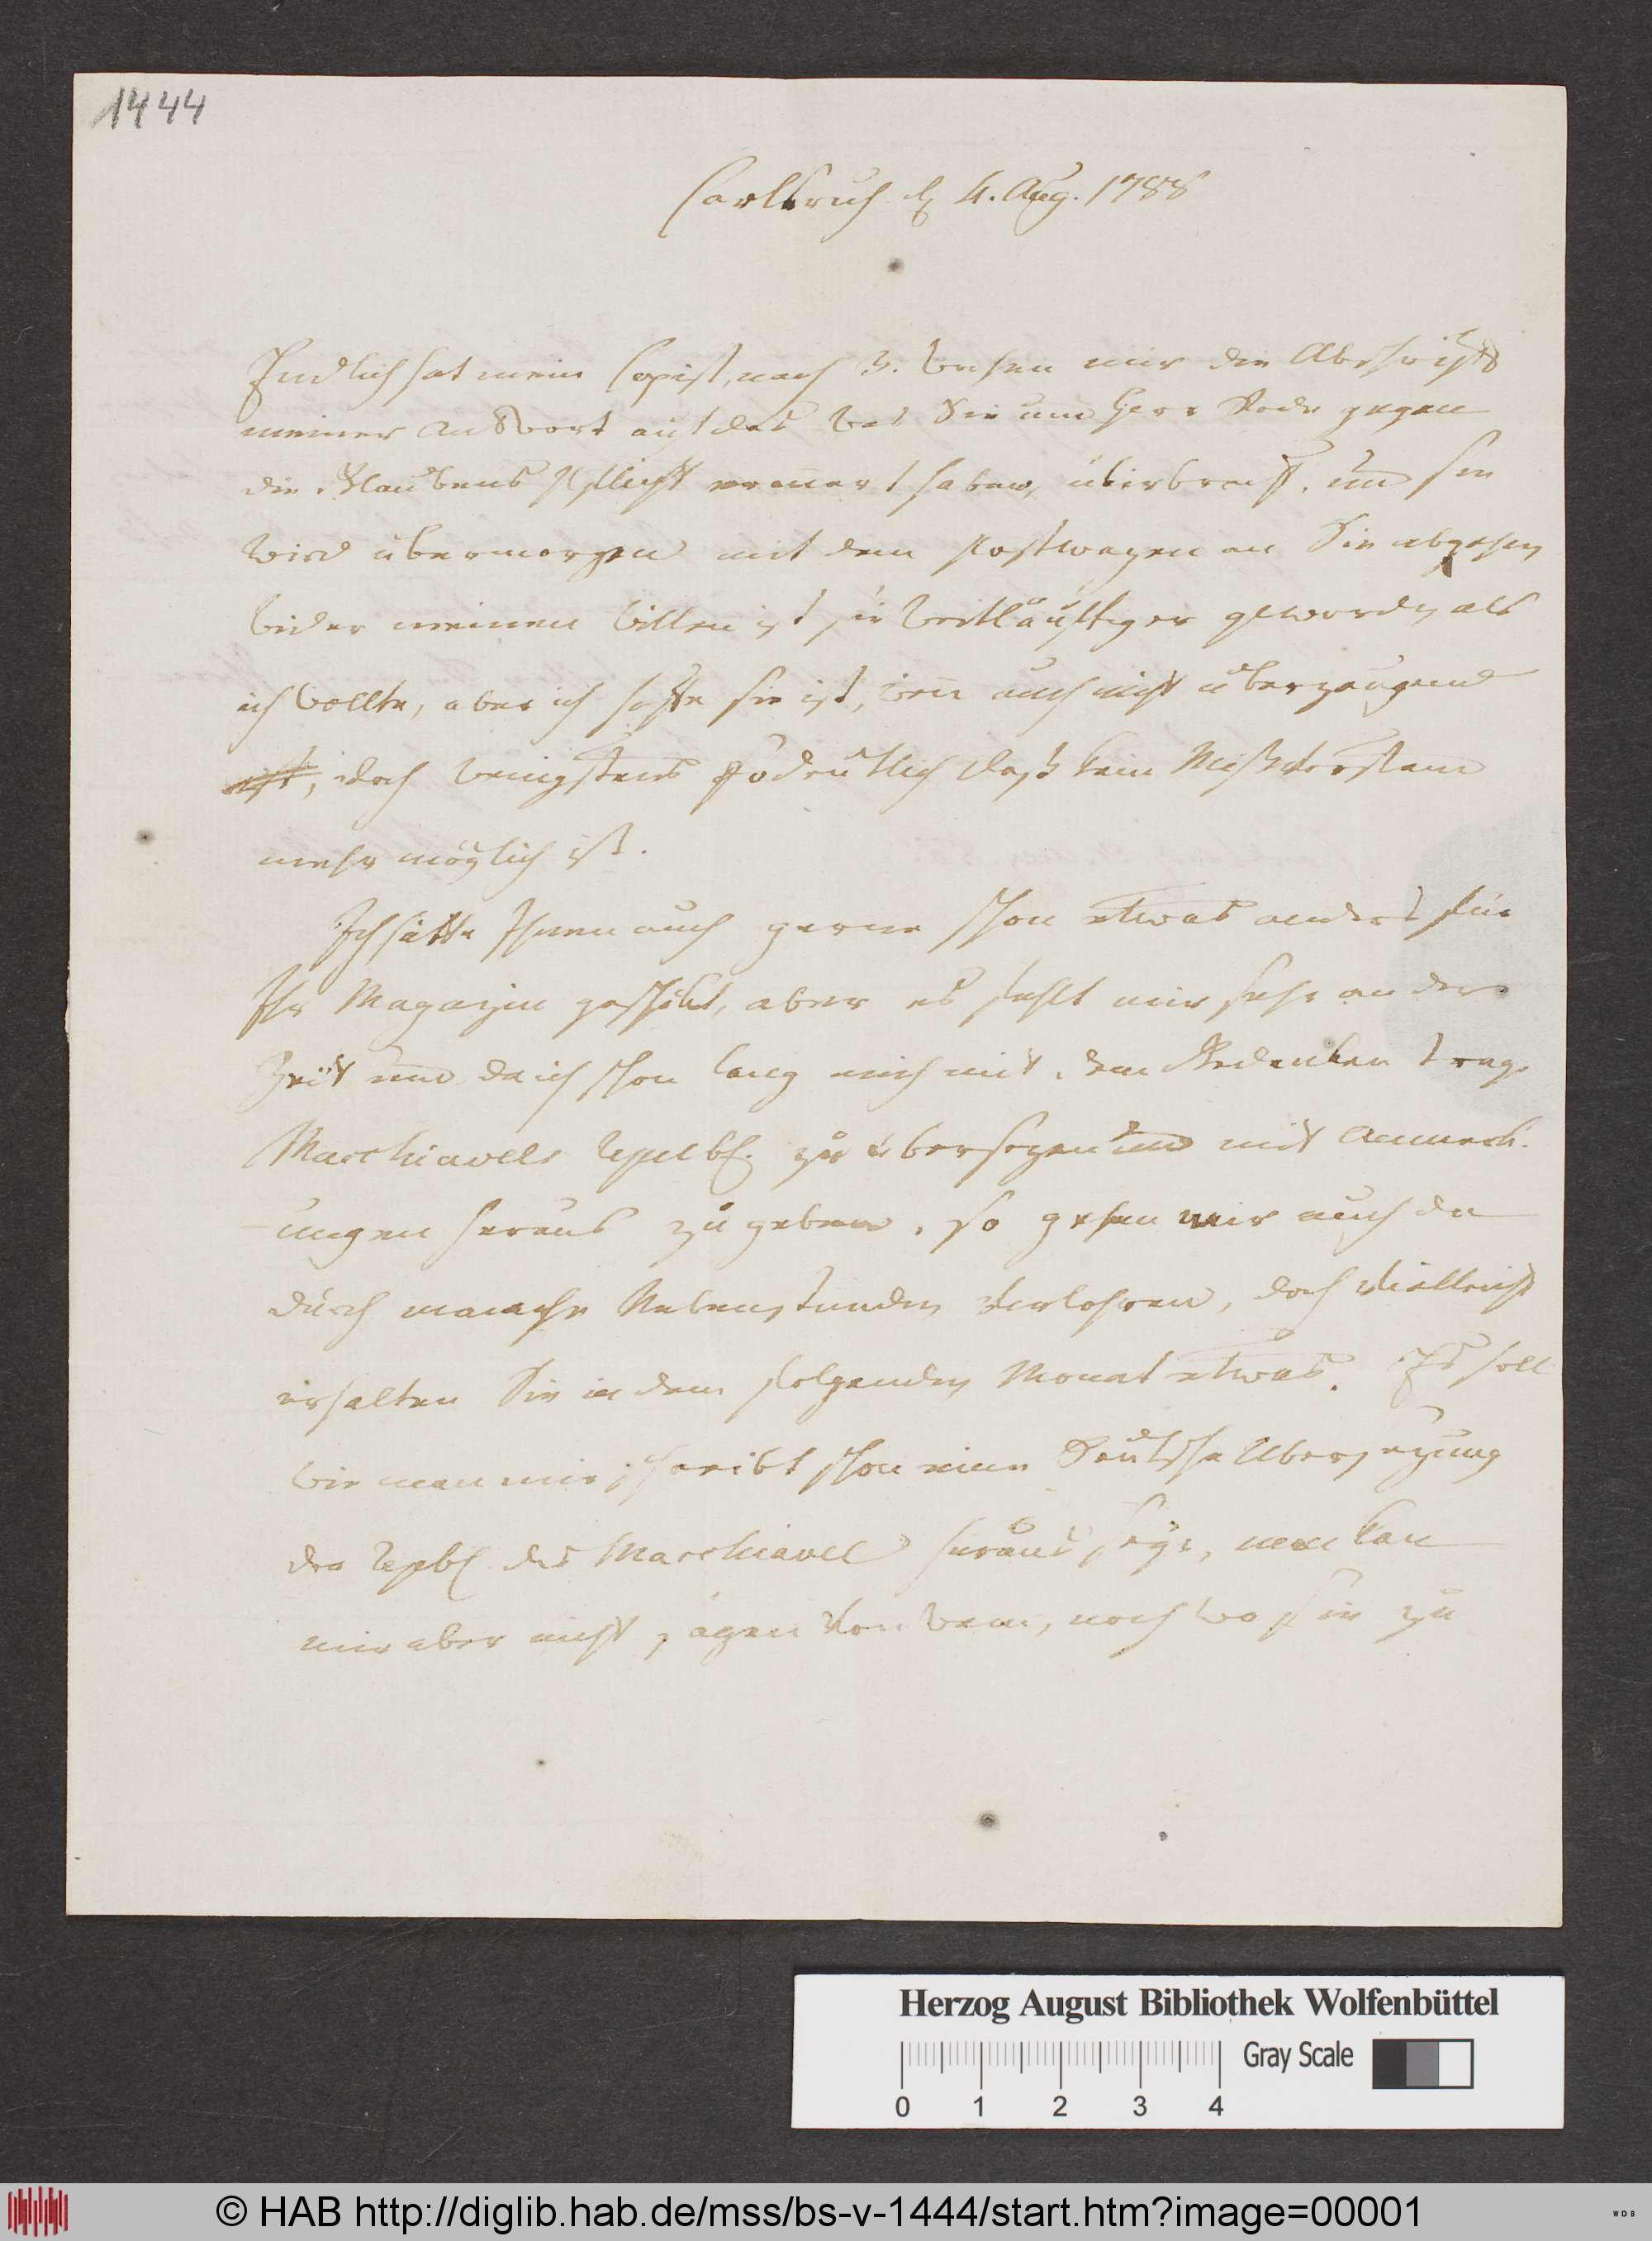 1444
Carlsruh d 4. Aug. 1788
Endlich hat mein Copist, nach 3. Wochen mir die Abschrift
meiner Antwort auf das was Sie und Herr Rode gegen
die Glaubens Pflicht erinnert haben, überbracht, und sie
wird übermorgen mit dem Postwagen an Sie abgehen
wider meinen Willen ist sie weitläuftiger geworden als
ich wollte, aber ich hoffe sie ist, wen auch nicht überzeugend
ist, doch wenigstens so deutlich daß kein Mißverstand
mehr möglich ist.
Ich hätte Ihnen auch gerne schon etwas anders für
Ihr Magazin geschikt, aber es fehlt mir sehr an der
Zeit und da ich schon lang mich mit dem Gedenken trage
Macchiavels Republ. zu übersezen und mit Anmerk-
ungen heraus zu geben, so gehen mir auch da
durch manche Nebenstunden verlohren, doch vielleicht
erhalten Sie in dem folgenden Monat etwas. Es soll
wie man mir schreibt schon eine Deutsche Ubersezung
der Rep des Macchiavel heraus seyn, man kan
mir aber nicht sagen von wem, noch wo sie zu
Herzog August Bibliothek Wolfenbüttel
Gray Scale
0 1 2 3 4
© HAB http://diglib.hab.de/mss/bs-v-1444/start.htm?image=00001
WDB